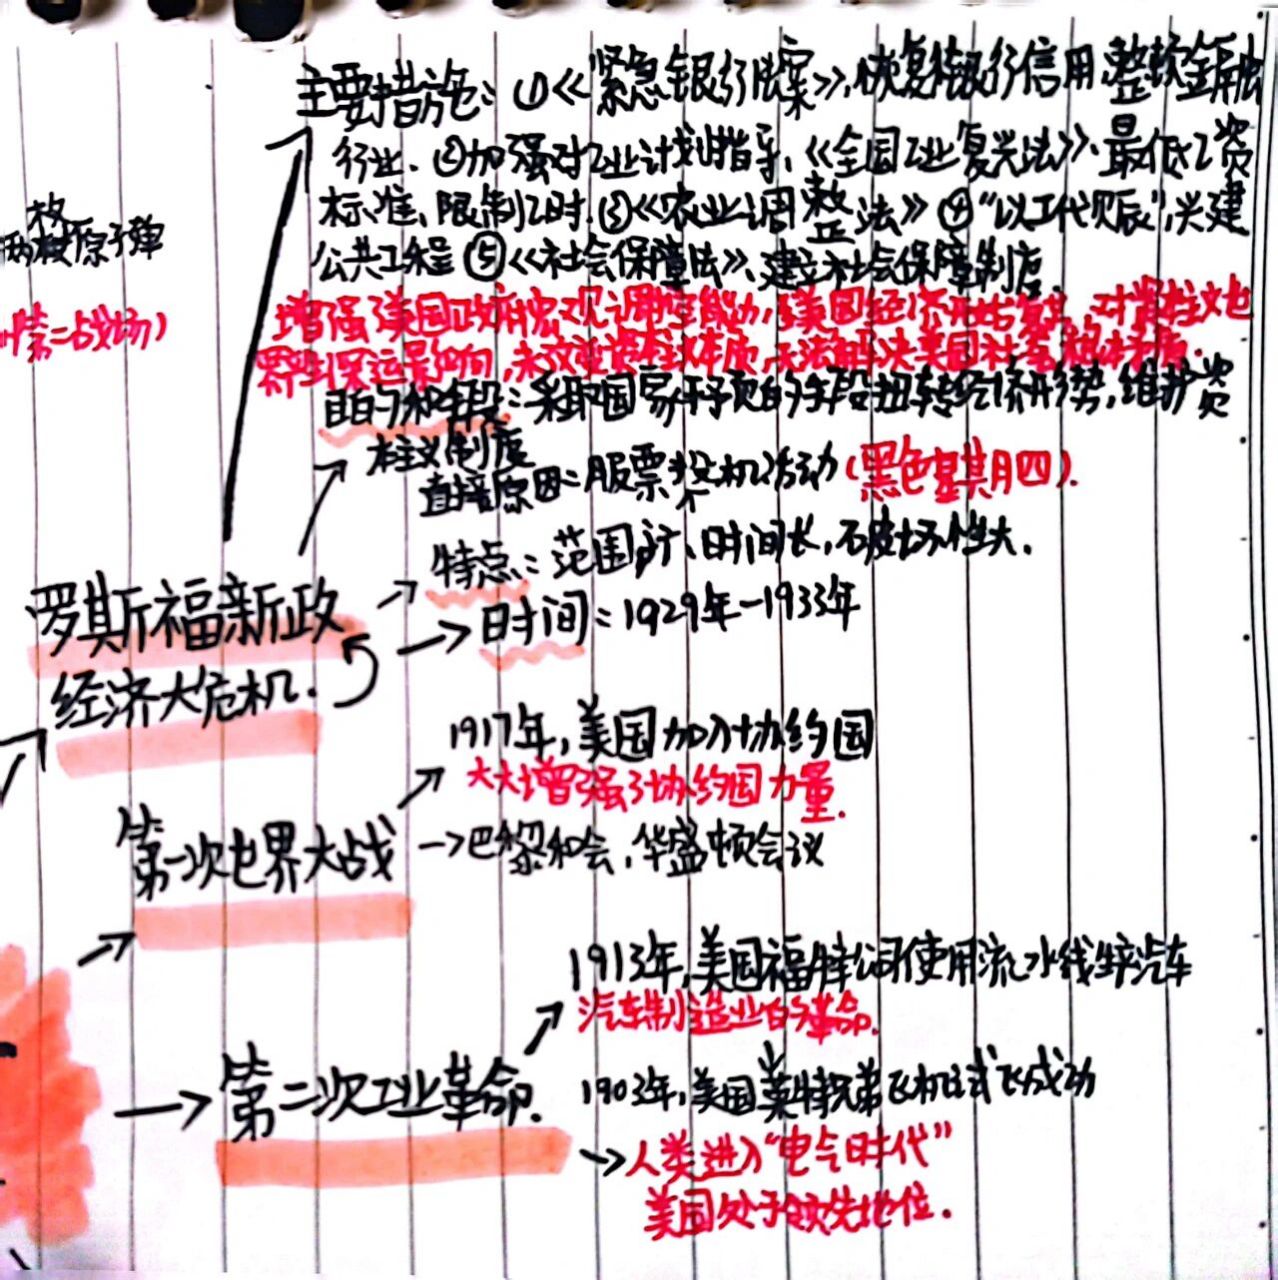 主要措施：①《紧急银行法案》，恢复银行信用，整顿金融
行业．②加强对工业计划指导，《全国工业复兴法》．最低工资
标准、限制工时．③《农业调整法》④“以工代赈”，兴建
公共工程⑤《社会保障法》，建立社会保障制度．
增强了美国政府宏观调控能力，美国经济开始复苏，对资本主义世
界影响，未改变资本主义本质，无法解决美国社会基本矛盾．
目的和手段：采取国家干预的手段扭转经济形势，维护资
本主义制度
直接原因：股票投机活动（黑色星期四）．
特点：范围广、时间长，破坏性大．
时间：1929年-1933年
两枚原子弹
第二战场）
罗斯福新政
经济大危机．
1917年，美国加入协约国
大大增强了协约国力量．
第一次世界大战
→巴黎和会，华盛顿会议
1913年，美国福特公司使用流水线生产汽车
汽车制造业的革命．
第二次工业革命．
1903年，美国莱特兄弟飞机试飞成功
人类进入“电气时代”
美国处于领先地位．